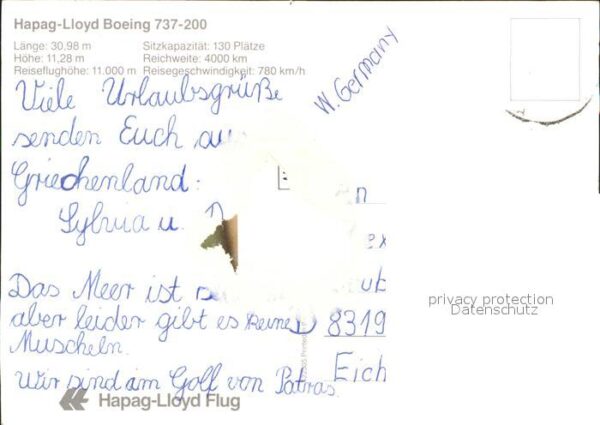 Hapag-Lloyd Boeing 737-200
Länge: 30,98 m Sitzkapazität: 130 Plätze
Höhe: 11,28 m Reichweite: 4000 km
Reiseflughöhe: 11.000 m Reisegeschwindigkeit: 780 km/h
W. Germany
Viele Urlaubsgrüße
senden Euch aus
Griechenland:
Sylvia u.
Das Meer ist
aber leider gibt es keine
Muscheln.
Wir sind am Golf von Patras.
D 8319
Eich
Hapag-Lloyd Flug
privacy protection
Datenschutz